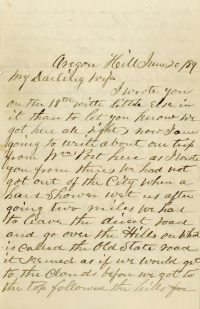 Oregon Hill June 20/89
My Darling Wife
I wrote you
on the 18th with little else in
it than to let you know we
got here all right now I am
going to write about our trip
from Wm Port here as I wrote
you from there we had not
got out of the City when a
hard Shower wet us after
going two miles we had
to leave the direct road
and go over the Hills on What
is called the Old State road
it seemed as if we would get
to the Clouds before we got to
the top followed the hills for